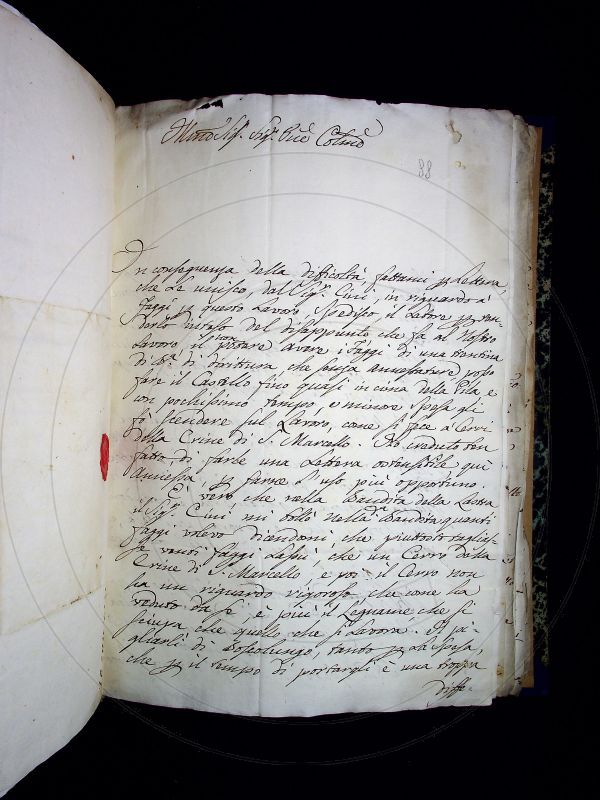 88
In conseguenza della difficoltà fattami p. Lettera,
che Le unisco, dal Sig.r Cini, in riguardo a'
Faggi p. questo Lavoro, spedisco il Latore p. ren-
derlo inteso del disappunto che fa al Nostro
Lavoro il non potere avere i Faggi di una trentina
di B.a di dirittura, che senza annestature posso
fare il Castello fino quasi in cima della Pila, e
con pochissimo tempo, e minore spesa gli
fò scendere sul Lavoro, come si fece a' Cerri
della Crine di S. Marcello. Ho creduto ben
fatto, di farle una Lettera ostensibile qui
Annessa, p. farne l'uso più opportuno.
È vero che nella Bandita della
il Sig.r Cini mi bollò nella d.a Bandita quanti
faggi volevo, dicendomi, che piuttosto tagliass-
e venti faggi Lassù, che un Cerro dalla
Crine di S. Marcello, e poi il Cerro non
ha un riguardo rigoroso che come ha
veduto da se, è più il Legname, che si
sciupa che quello che si Lavora. Il pi-
gliarli di Boscolungo, tanto p. La Spesa,
che p. il tempo di portargli è una troppa
diffe-